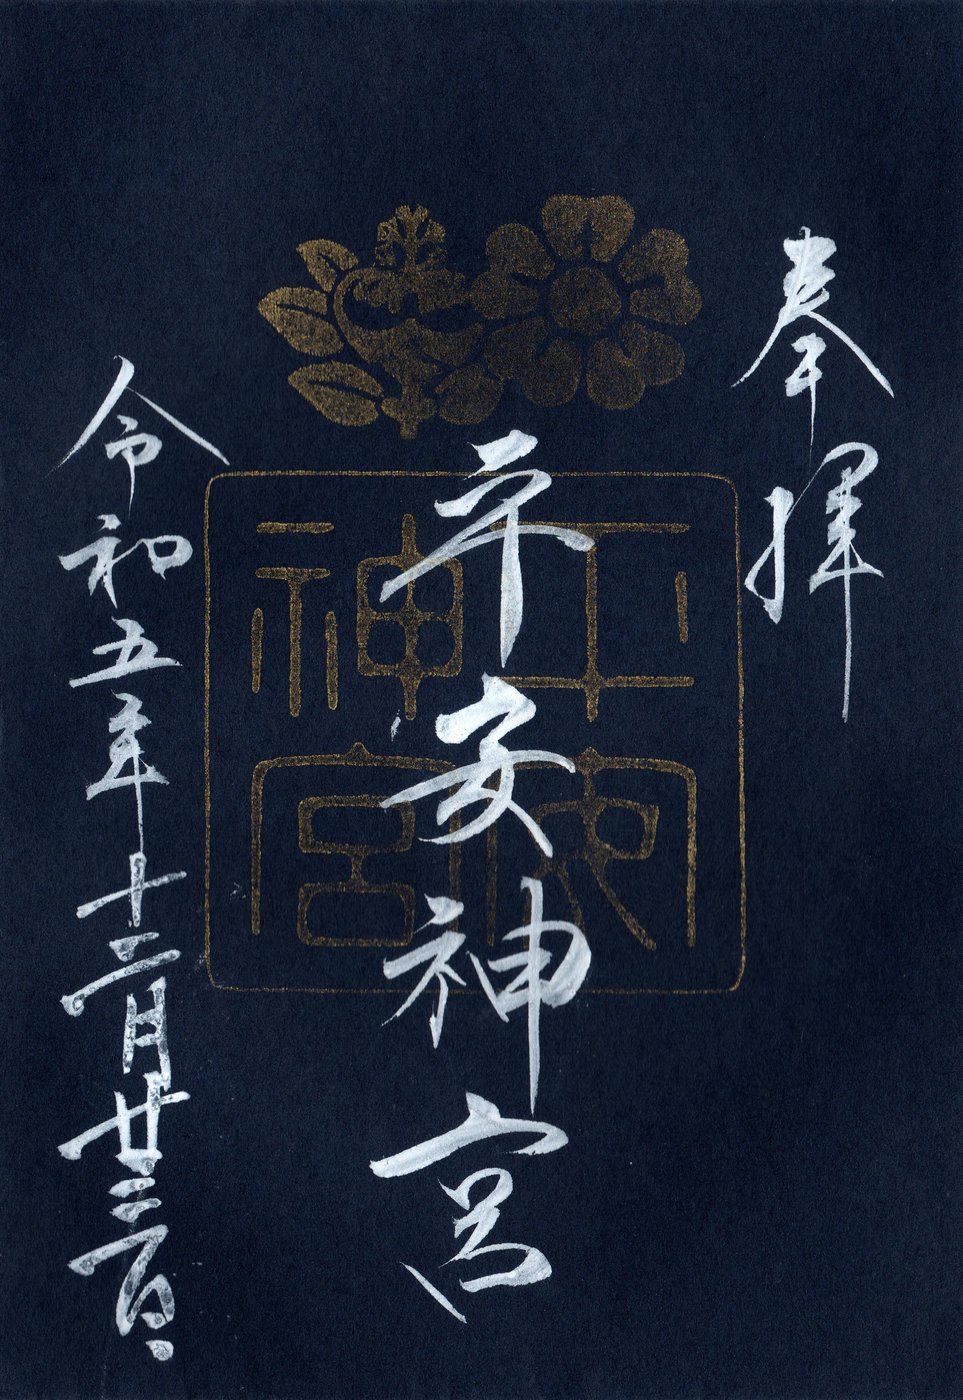 奉拝
平安神宮
平安神宮
令和五年十二月廿三日